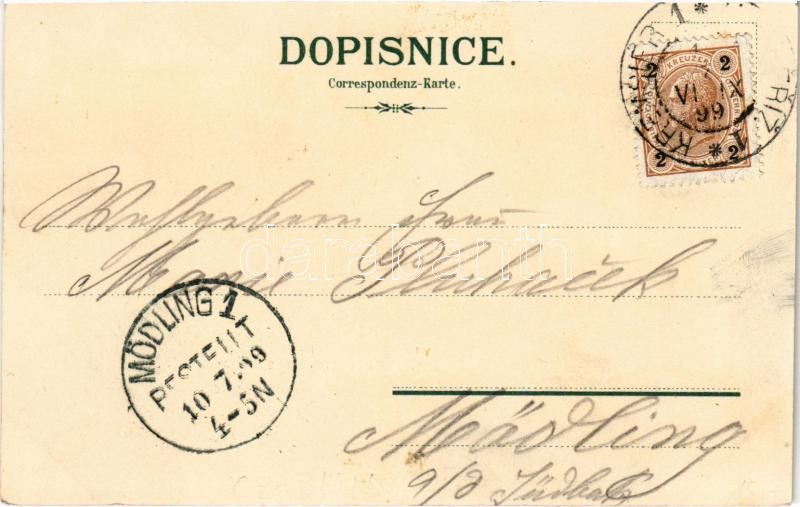 DOPISNICE.
Correspondenz-Karte.
2 KREUZER 2
VII IX
99
KREMSIER
2 2
1
Wohlgeboren Frau
Marie Pluhaček
darabanth
MÖDLING 1
BESTELLT
10 7.99
4-5N
Mödling
a/d Südbah